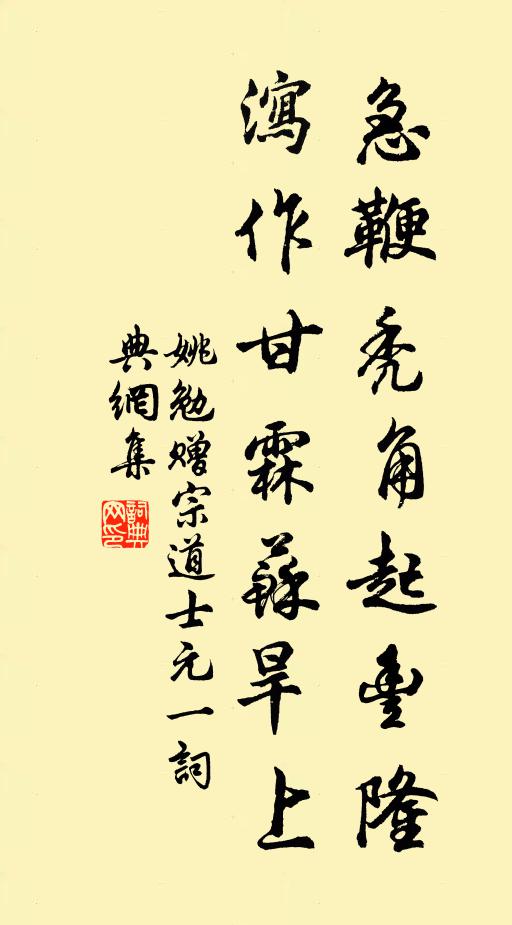 急鞭禿角起豐隆
瀉作甘霖蘇旱上
姚勉贈宗道士元一詞
典網集
詞典网印